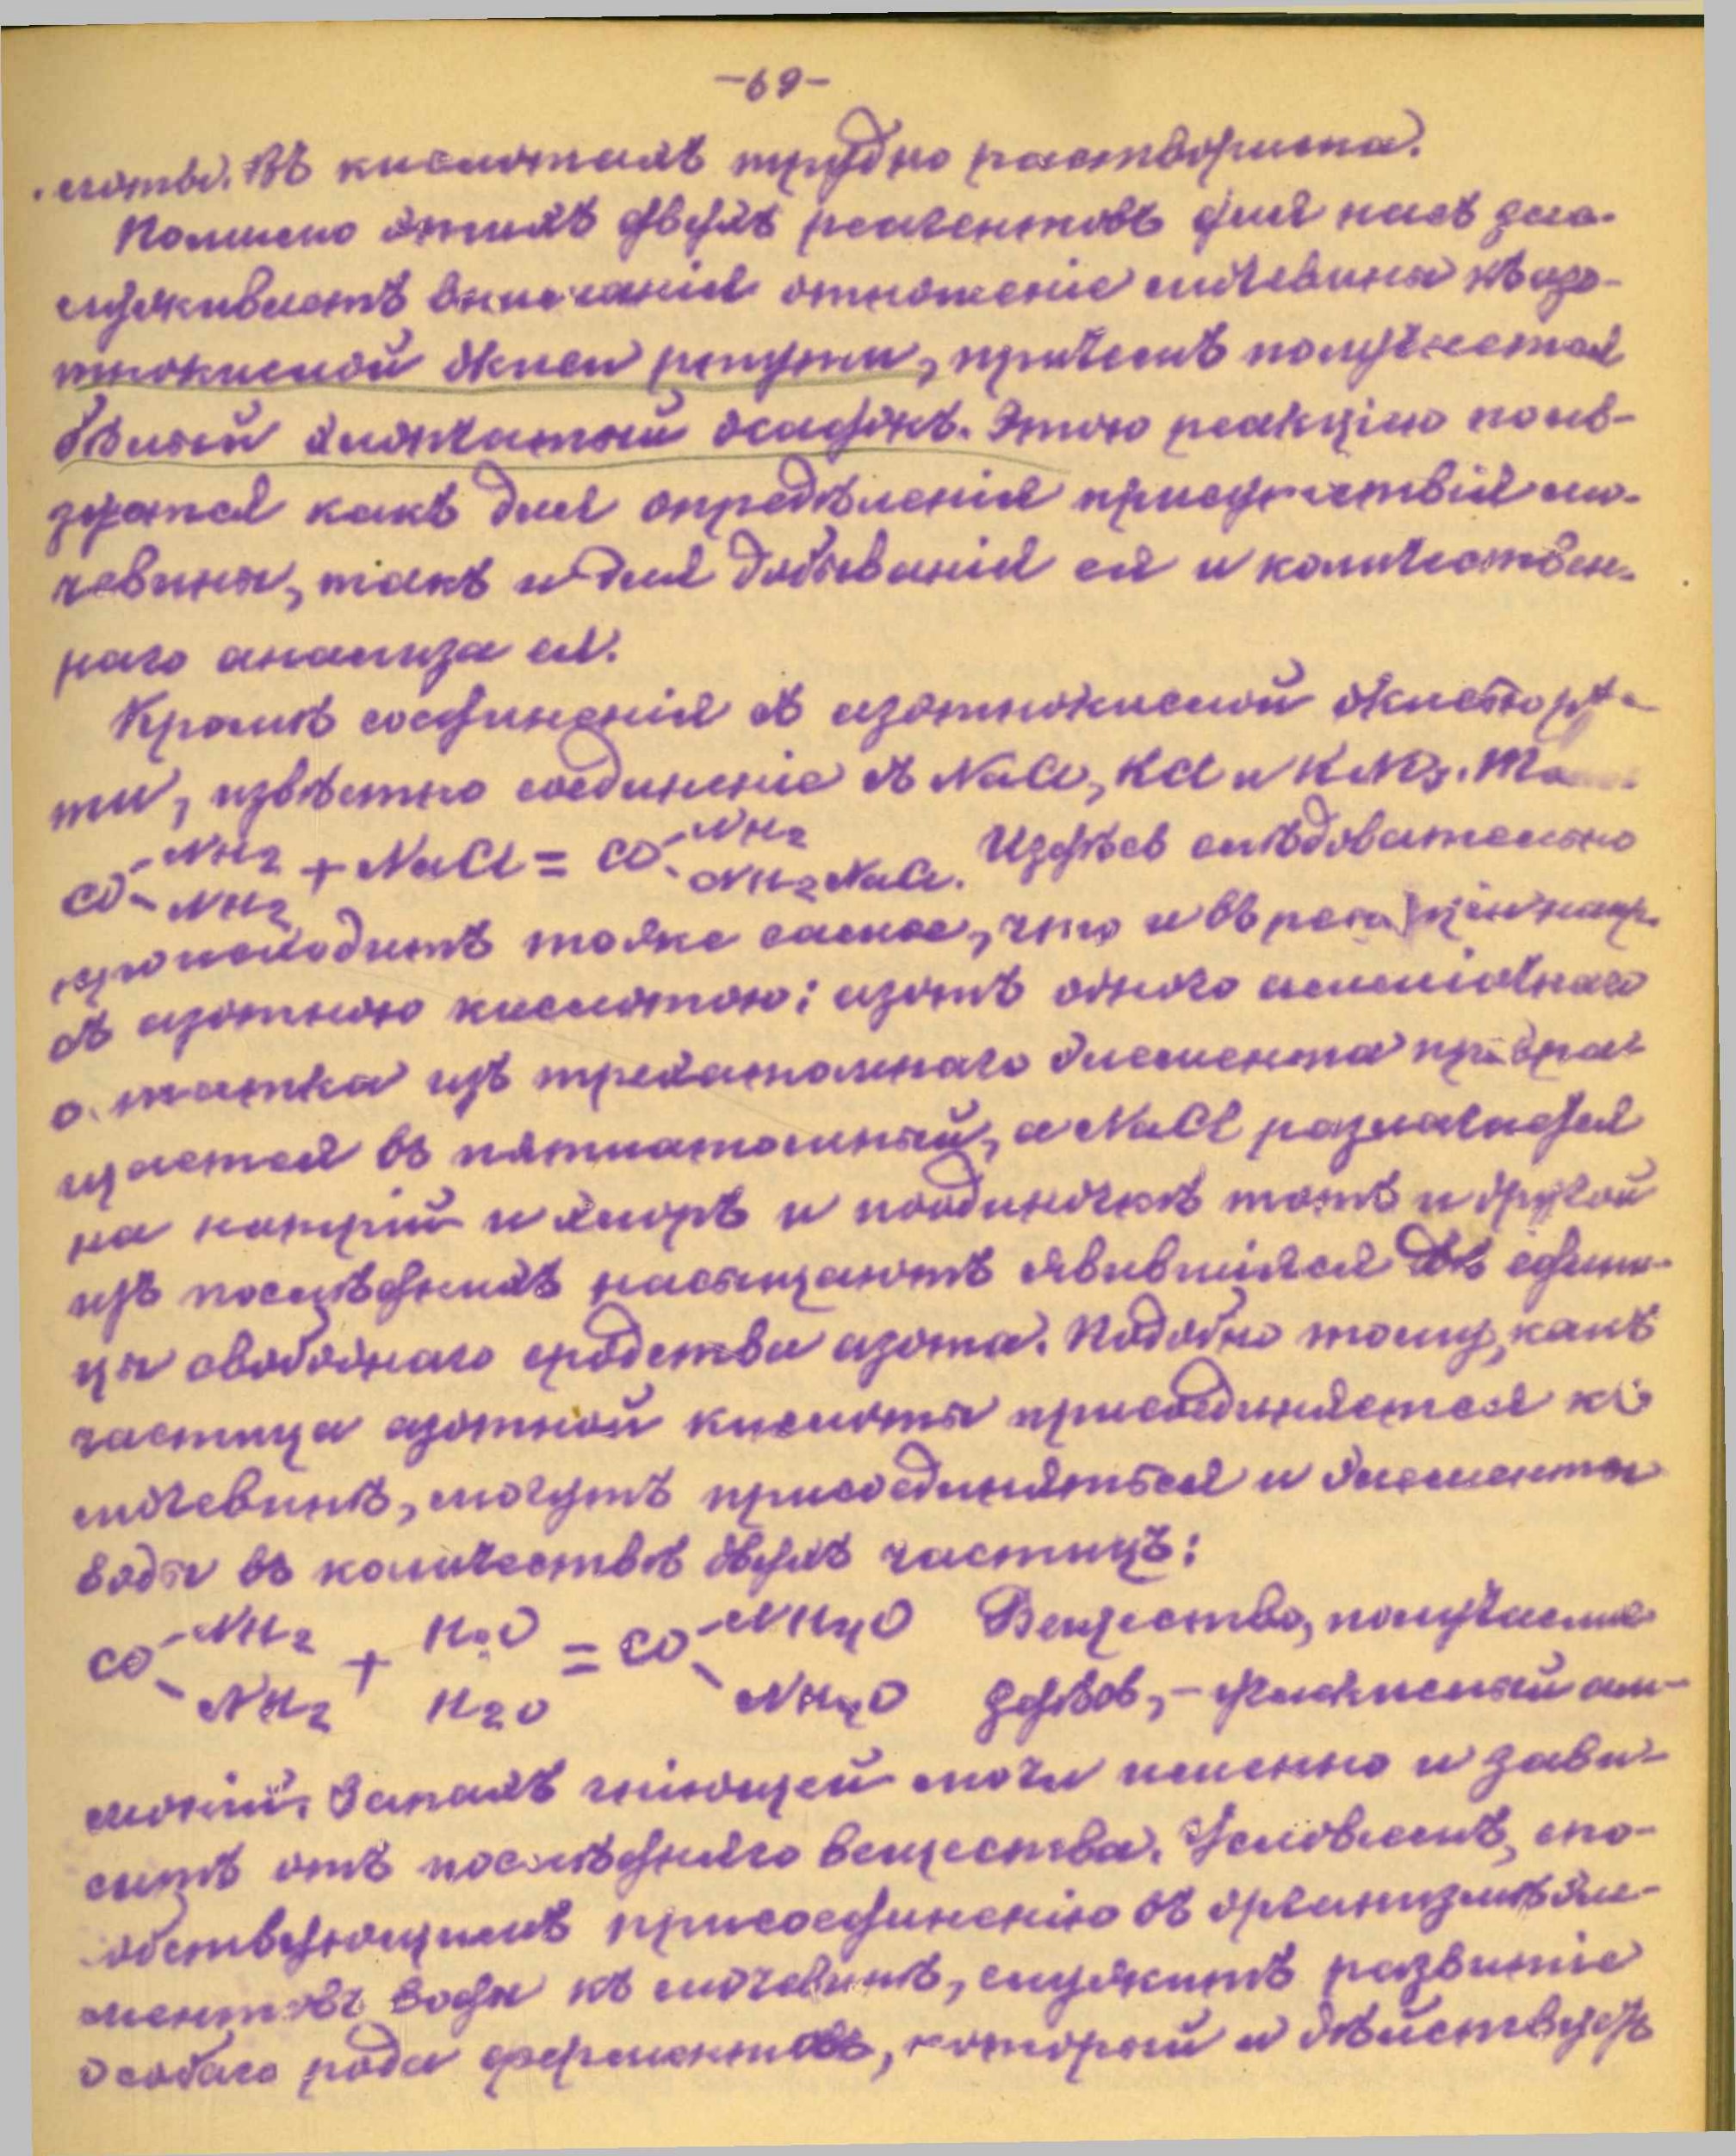 -69-
слоты. Въ кислотахъ трудно растворима.
Помимо этихъ двухъ реагентовъ для насъ зас-
луживаетъ вниманія отношеніе мочевины къ азо-
тнокислой окиси ртути, причемъ получается
бѣлый хлопчатый осадокъ. Этою реакціею поль-
зуются какъ для опредѣленія присутствія мо-
чевины, такъ и для добыванія ея и количествен-
наго анализа ея.
Кромѣ соединенія съ азотнокислой окисью рту-
ти, извѣстно соединеніе съ NaCl, KCl и KNO3.
CO-NH2 NH2 + NaCl = CO-NH2 NH2NaCl. Издѣсь слѣдовательно
происходитъ тоже самое, что и въ реакціи напр.
съ азотною кислотою: азотъ одного амміачнаго
остатка изъ трехатомнаго элемента превра-
щается въ пятиатомный, а NaCl разлагается
на натрій и хлоръ и поодиночкѣ тотъ и другой
изъ послѣднихъ насыщаютъ явившіяся двѣ едини-
цы свободнаго сродства азота. Подобно тому, какъ
частица азотной кислоты присоединяется къ
мочевинѣ, могутъ присоединяться и элементы
воды въ количествѣ двухъ частицъ:
CO-NH2 NH2 + H2O H2O = CO-NH4O NH4O Вещество, получаемое
здѣсь, - углекислый ам-
моній. Запахъ гніющей мочи именно и зави-
ситъ отъ послѣдняго вещества. Условіемъ, спо-
собствующимъ присоединенію въ организмѣ эле-
ментовъ воды къ мочевинѣ, служитъ развитіе
особаго рода ферментовъ, который и дѣйствуетъ